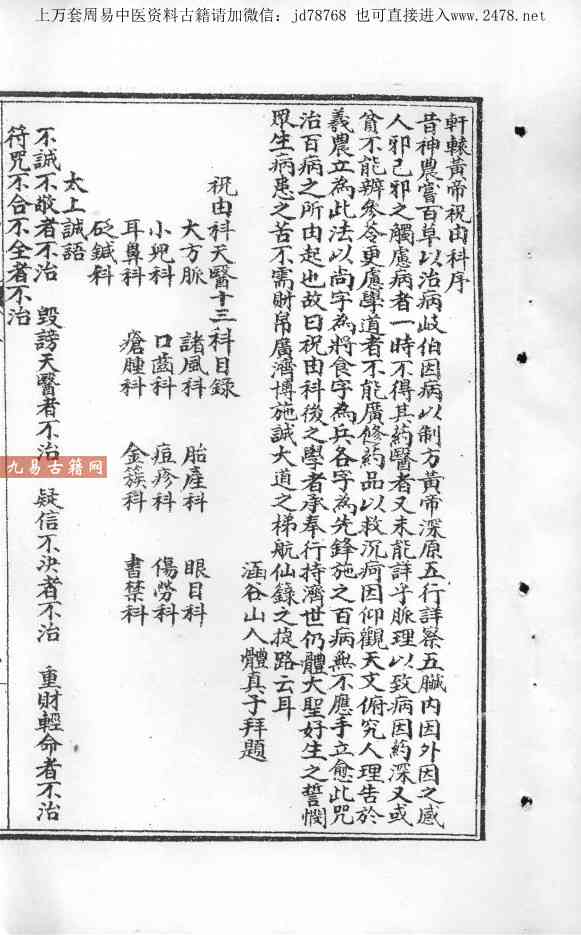 上万套周易中医资料古籍请加微信：jd78768 也可直接进入www.2478.net
軒轅黃帝祝由科序
昔神農嘗百草以治病岐伯因病以制方黃帝深原五行詳察五臟内因外因之感
人邪己邪之觸慮病者一時不得其藥醫者又未能詳乎脈理以致病因約深又或
貧不能辨參苓更慮學道者不能廣修藥品以救沉疴因仰觀天文俯究人理告於
羲農立為此法以尚字為將食字為兵各字為先鋒施之百病無不應手立愈此咒
治百病之所由起也故曰祝由科後之學者承奉行持濟世仍體大聖好生之誓憫
眾生病患之苦不需財帛廣濟博施誠大道之梯航仙錄之捷路云耳
涵谷山人體真子拜題
祝由科天醫十三科目錄
大方脈 諸風科 胎產科 眼目科
小兒科 口齒科 痘疹科 傷勞科
耳鼻科 瘡腫科 金簇科 書禁科
砭鍼科
太上誠語
不誠不敬者不治 毀謗天醫者不治 疑信不決者不治 重財輕命者不治
符咒不合不全者不治
九易古籍网